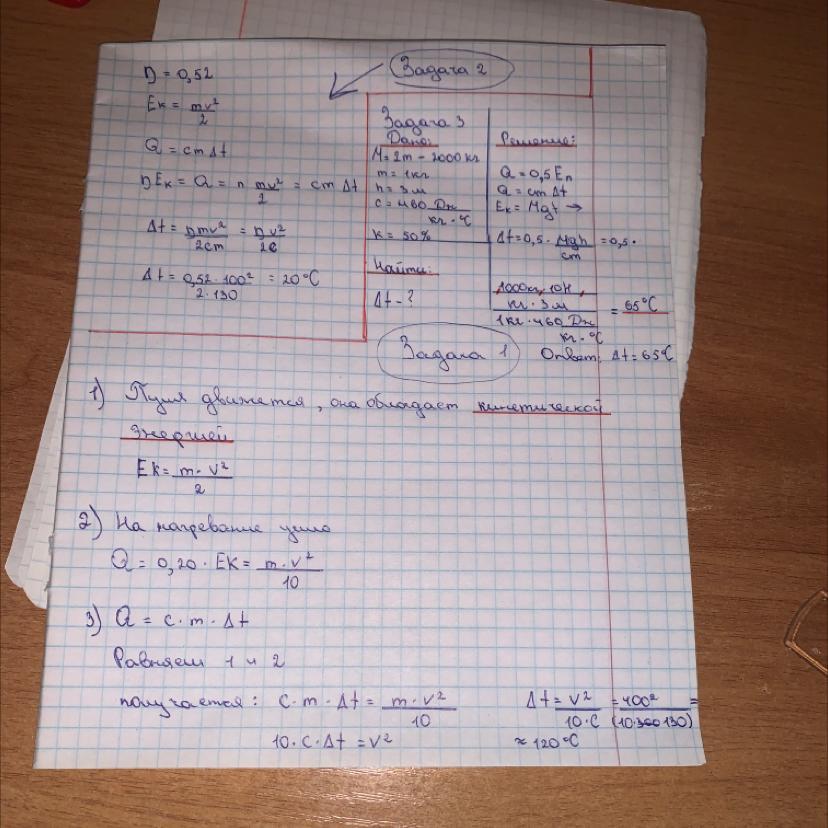 Задача 2
η = 0,52
Eк = mv²/2
Q = cmΔt
ηEк = Q = η mv²/2 = cmΔt
Δt = ηmv²/2cm = ηv²/2c
Δt = 0,52·100²/2·130 = 20°C
Задача 3
Дано:
M = 2т - 2000кг
m = 1кг
h = 3м
c = 460 Дж/кг·°C
k = 50%
Найти:
Δt - ?
Решение:
Q = 0,5Eп
Q = cmΔt
Eк = Mgh →
Δt = 0,5 · Mgh/cm = 0,5 ·
1000кг, 10Н, кг · 3м/1кг · 460 Дж/кг·°C = 65°C
Ответ: Δt = 65°C
Задача 1
1) Пуля движется, она обладает кинетической
энергией
Eк = m·v²/2
2) На нагревание ушло
Q = 0,20 · Eк = m·v²/10
3) Q = c·m·Δt
Равняем 1 и 2
получается: c·m·Δt = m·v²/10
10·c·Δt = v²
Δt = v²/10·c = 400²/(10·130) =
≈ 120°C